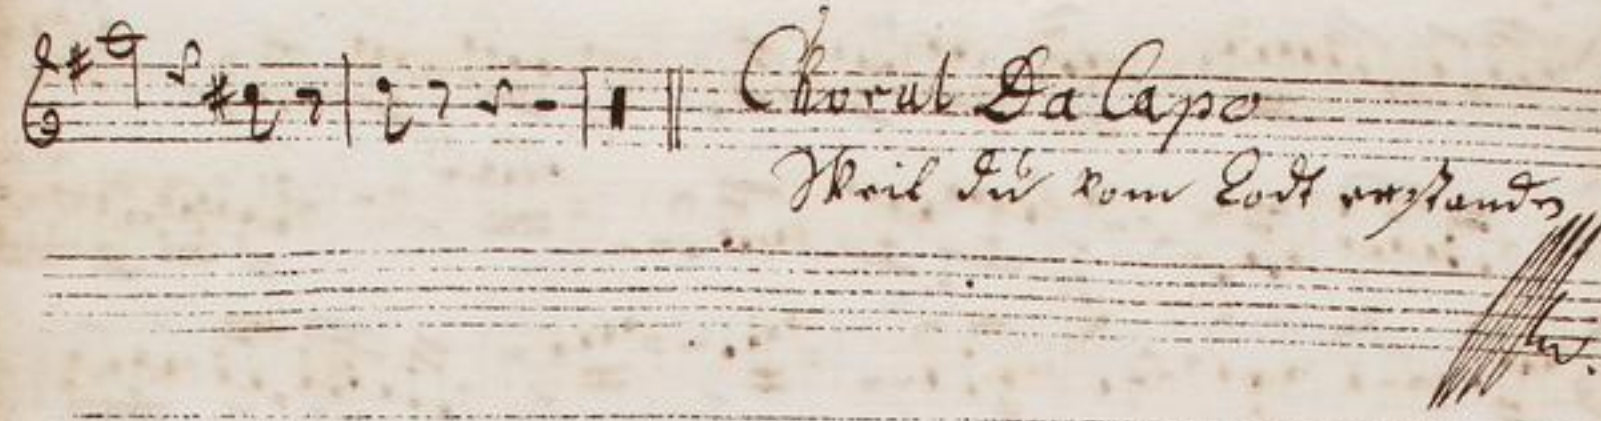 Choral Da Capo
Weil du vom Todt erstanden